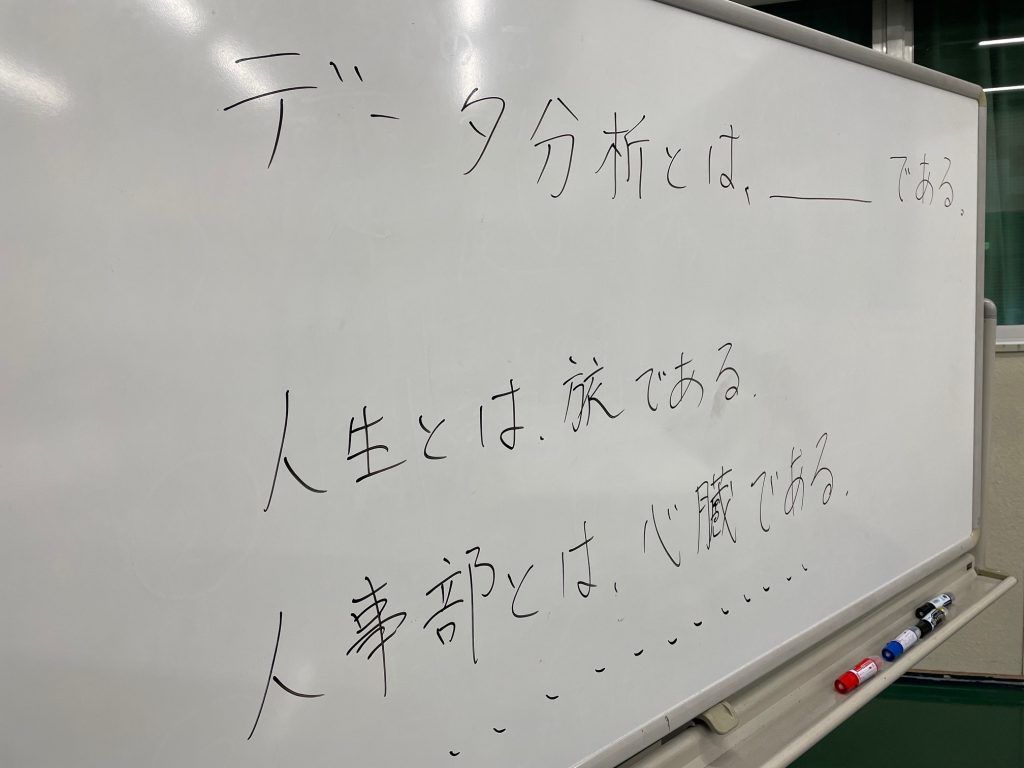 データ分析とは、____である。
人生とは、旅である。
人事部とは、心臓である。